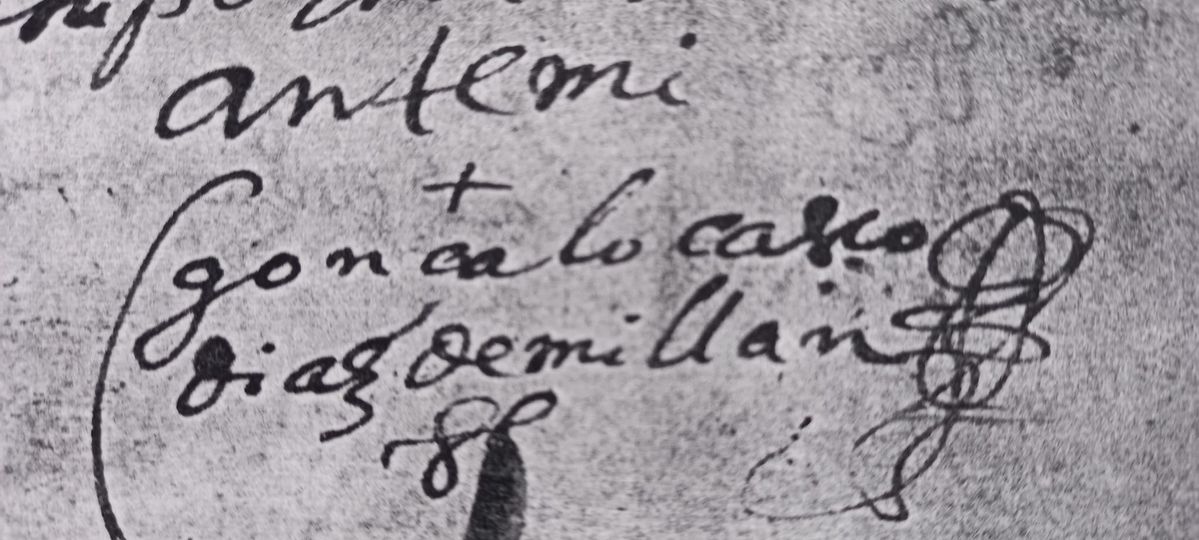 antemi
gonçalo casco
diaz de millan